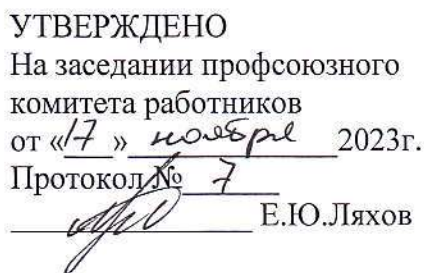 УТВЕРЖДЕНО
На заседании профсоюзного
комитета работников
от «17» ноября 2023г.
Протокол № 7
Е.Ю.Ляхов